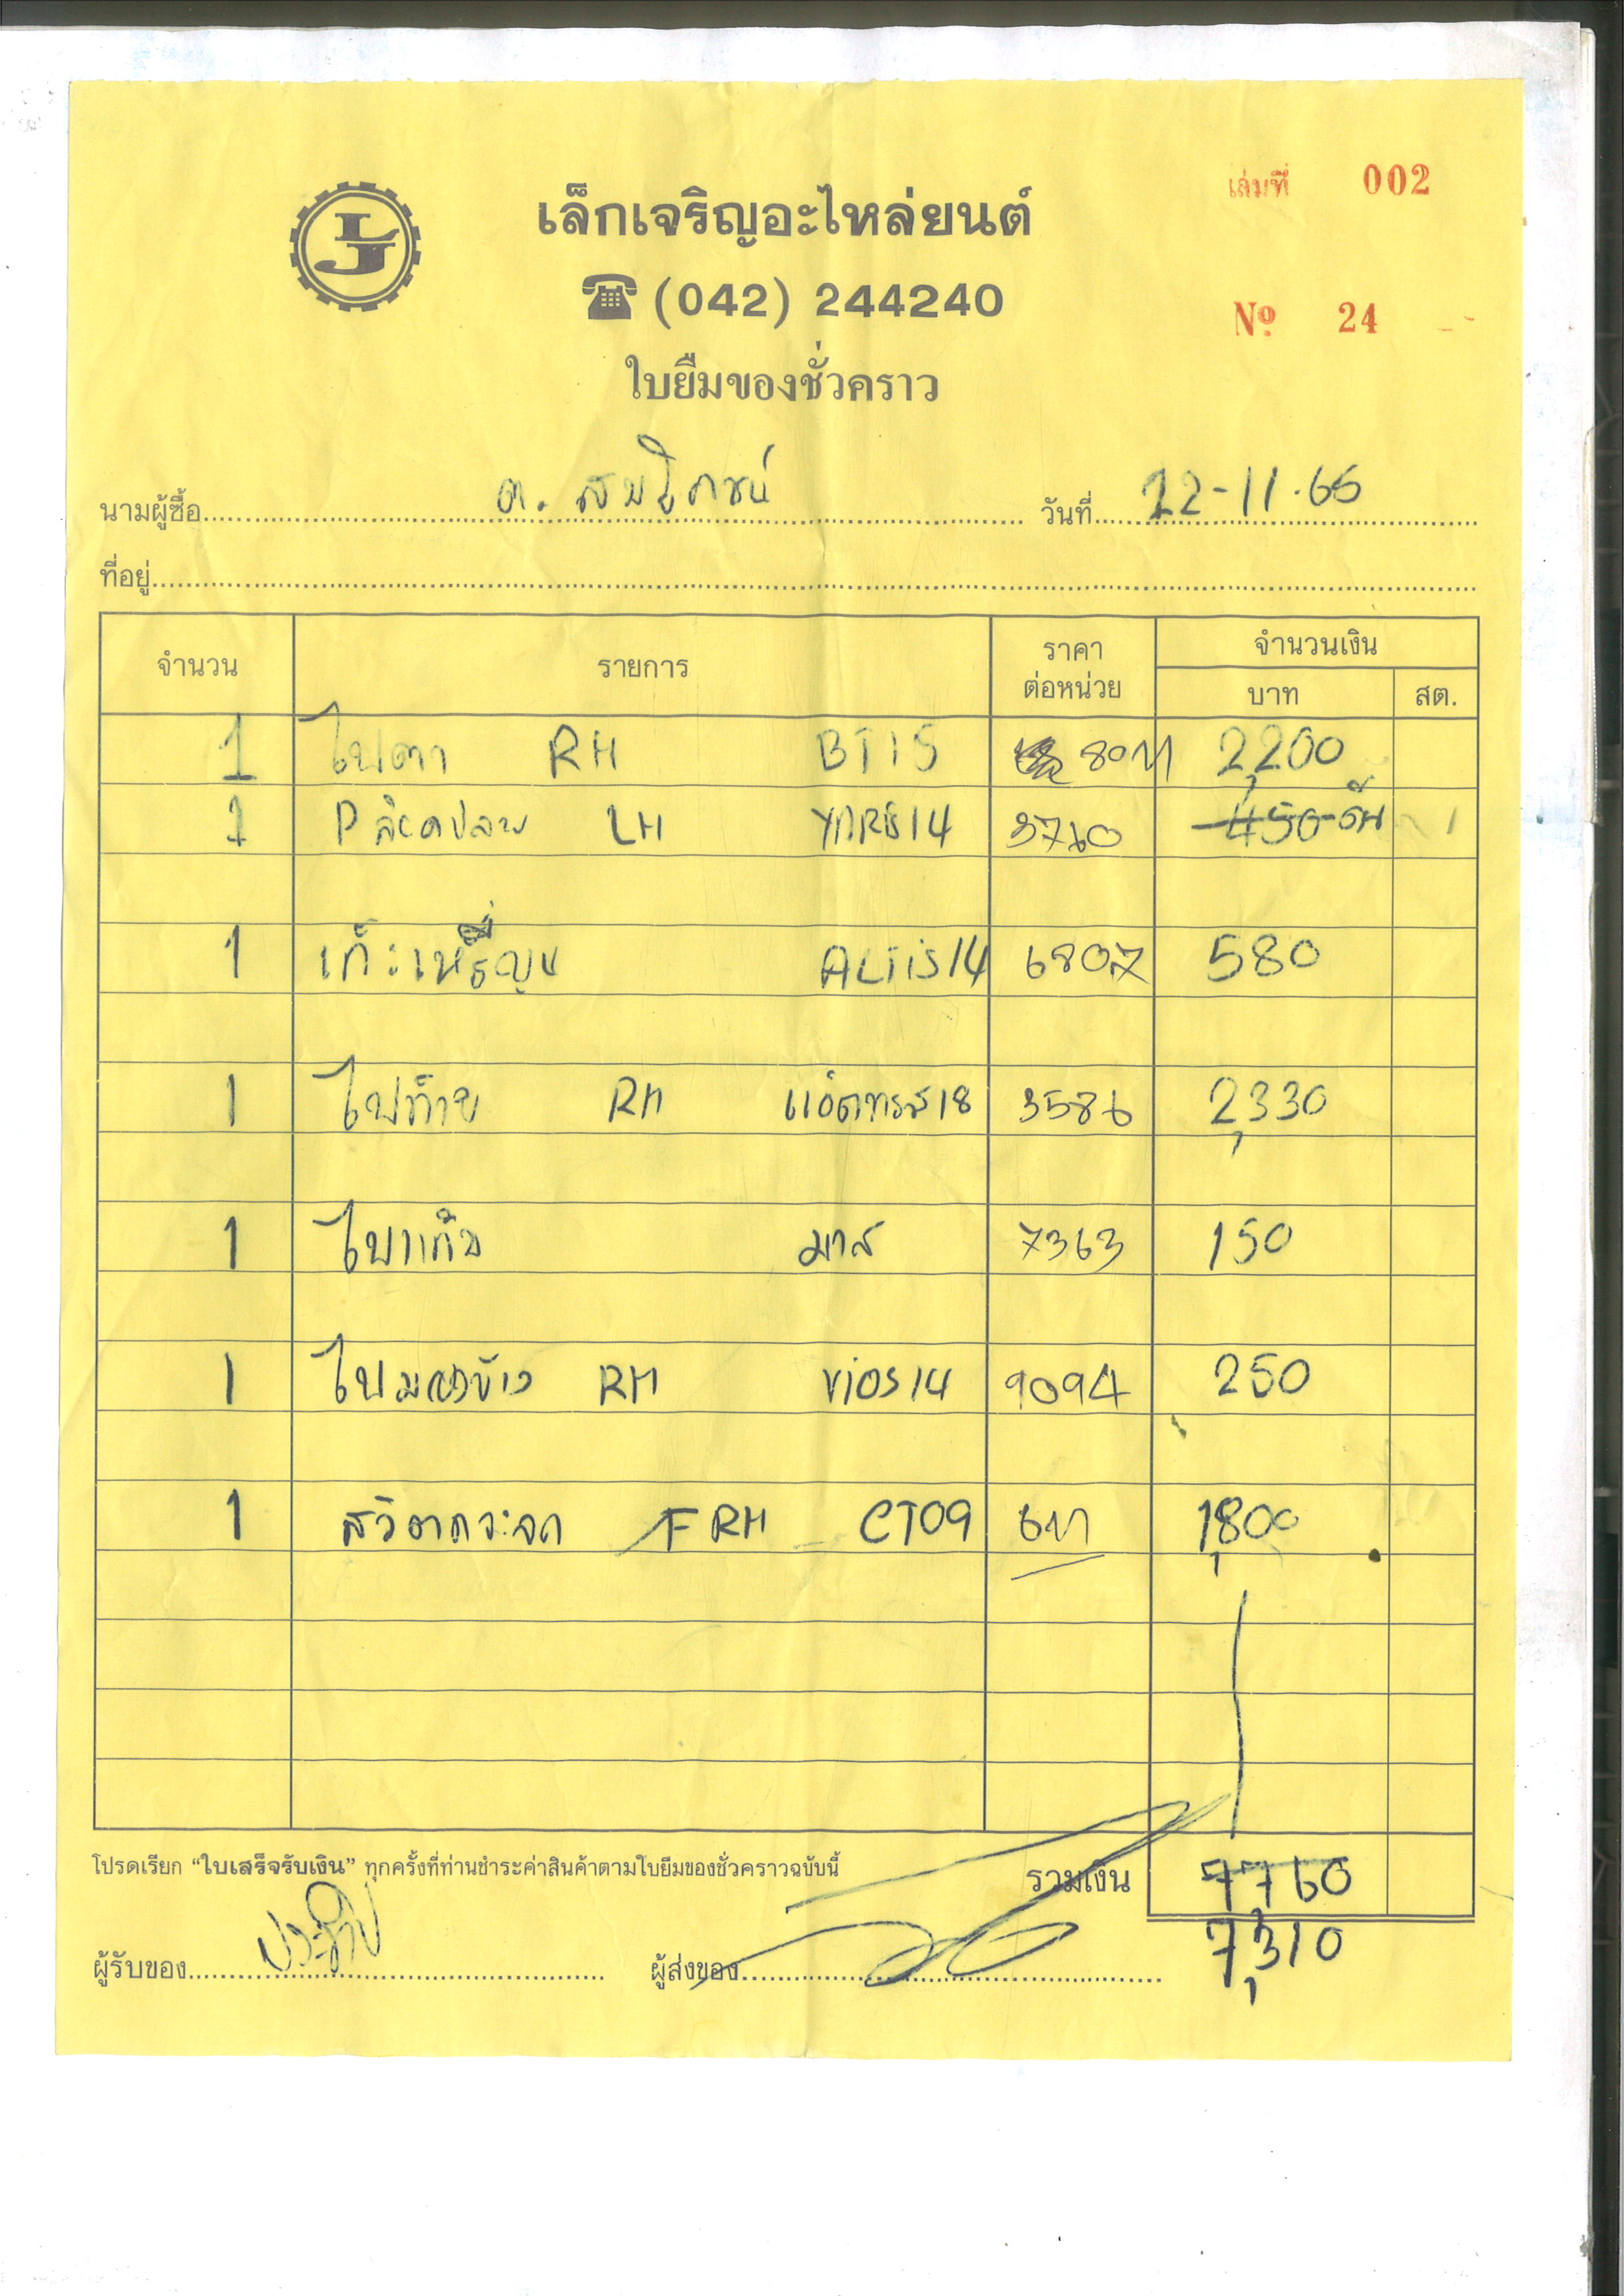 เล่มที่ 002
LJ
เล็กเจริญอะไหล่ยนต์
☎ (042) 244240
Nº 24
ใบยืมของชั่วคราว
นามผู้ซื้อ วันที่ 22-11-65
ที่อยู่
จำนวน รายการ ราคาต่อหน่วย จำนวนเงิน
บาท สต.
1 ไฟตา RH BT15 2,200
1 LH YARIS14 3760 450
1 ALTIS14 6807 580
1 ไฟท้าย RH แอ็ดทรส18 3586 2,330
1 ไฟแก้ม มาส 7363 150
1 ไฟมองข้าง RH VIOS14 9094 250
1 FRH CT09 1,800
โปรดเรียก “ใบเสร็จรับเงิน” ทุกครั้งที่ท่านชำระค่าสินค้าตามใบยืมของชั่วคราวฉบับนี้
รวมเงิน 7760
7,310
ผู้รับของ ผู้ส่งของ